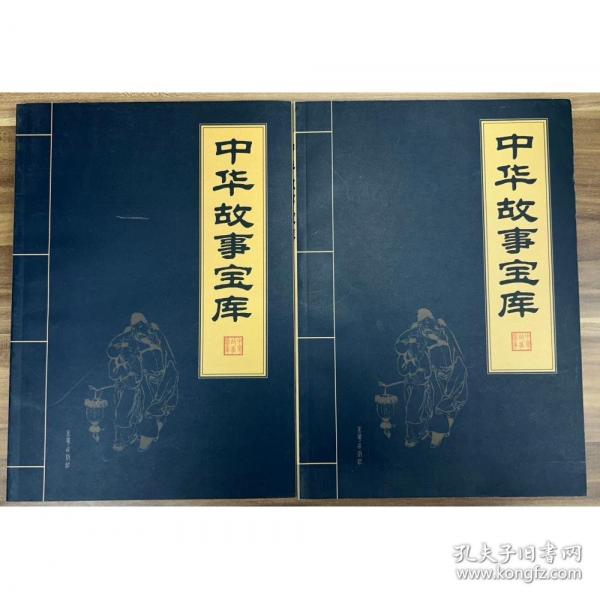 中华故事宝库
中华故事宝库
孔夫子旧书网
www.kongfz.com